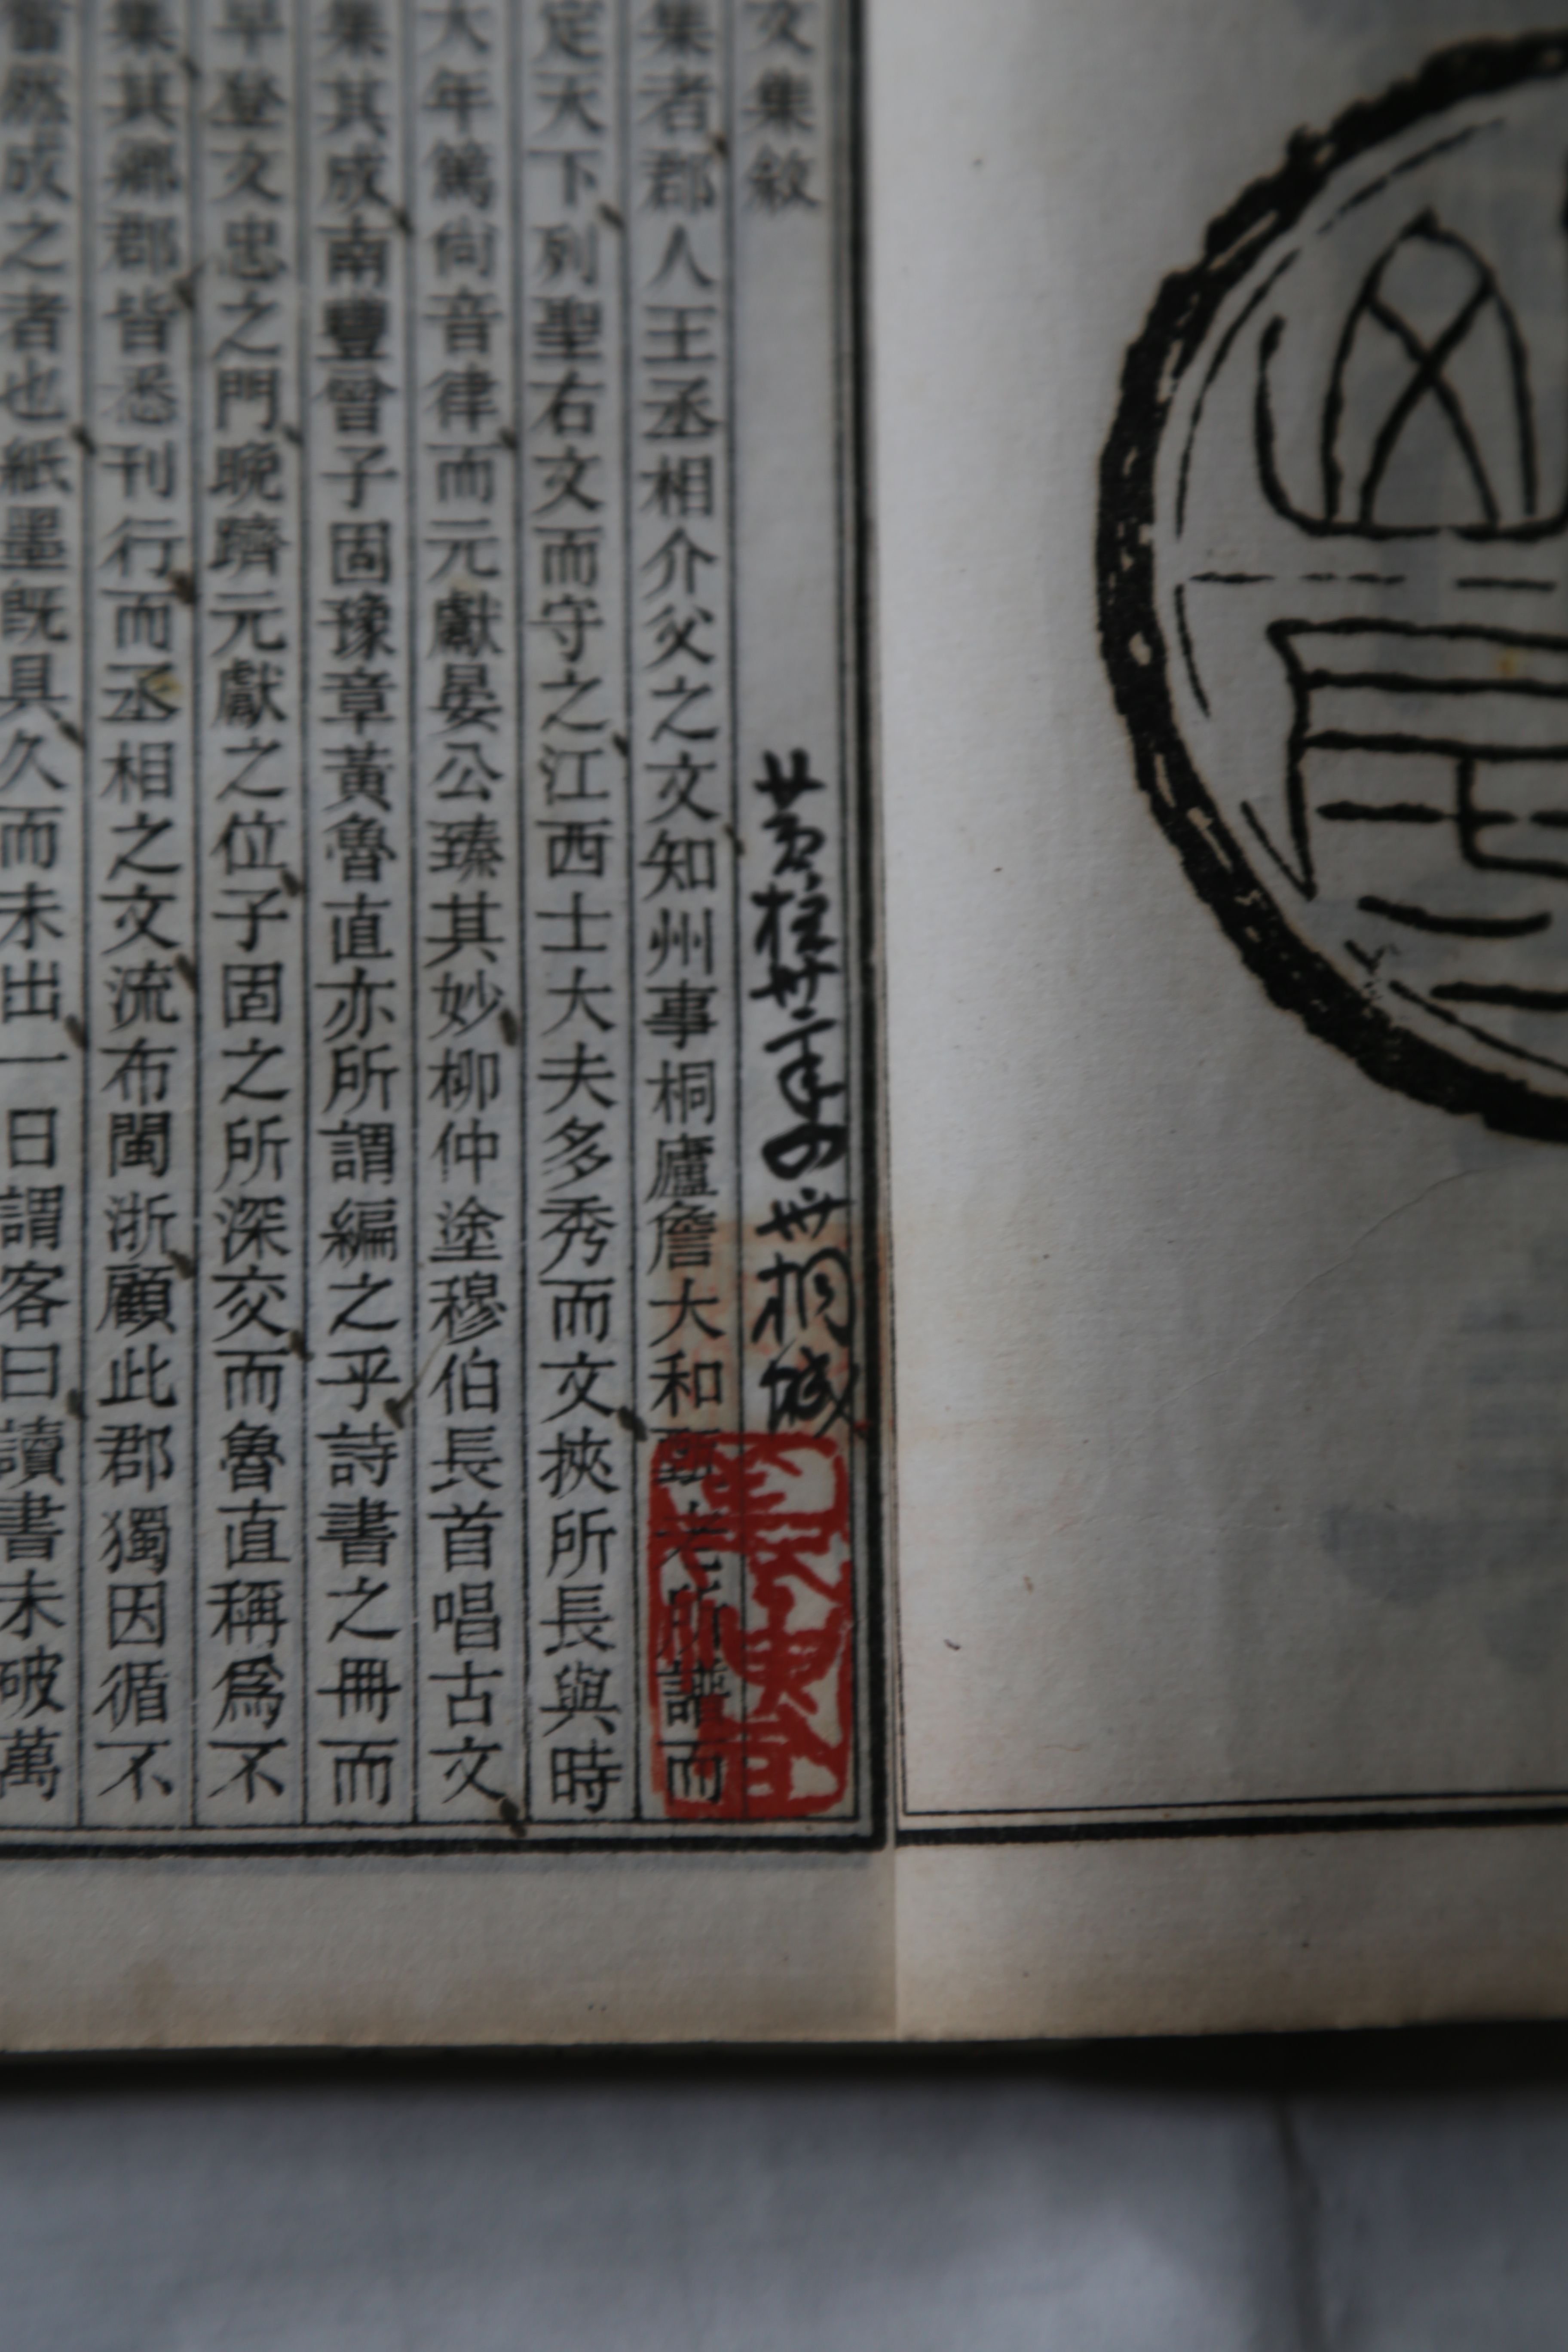 文集敘
桐城
集者郡人王丞相介父之文知州事桐廬詹大和甄老所譜而
定天下列聖右文而守之江西士大夫多秀而文挾所長與時
大年篤尙音律而元獻晏公臻其妙柳仲塗穆伯長首唱古文
集其成南豐曾子固豫章黃魯直亦所謂編之乎詩書之冊而
早登文忠之門晚躋元獻之位子固之所深交而魯直稱爲不
集其鄉郡皆悉刊行而丞相之文流布閩浙顧此郡獨因循不
然成之者也紙墨旣具久而未出一日謂客曰讀書未破萬